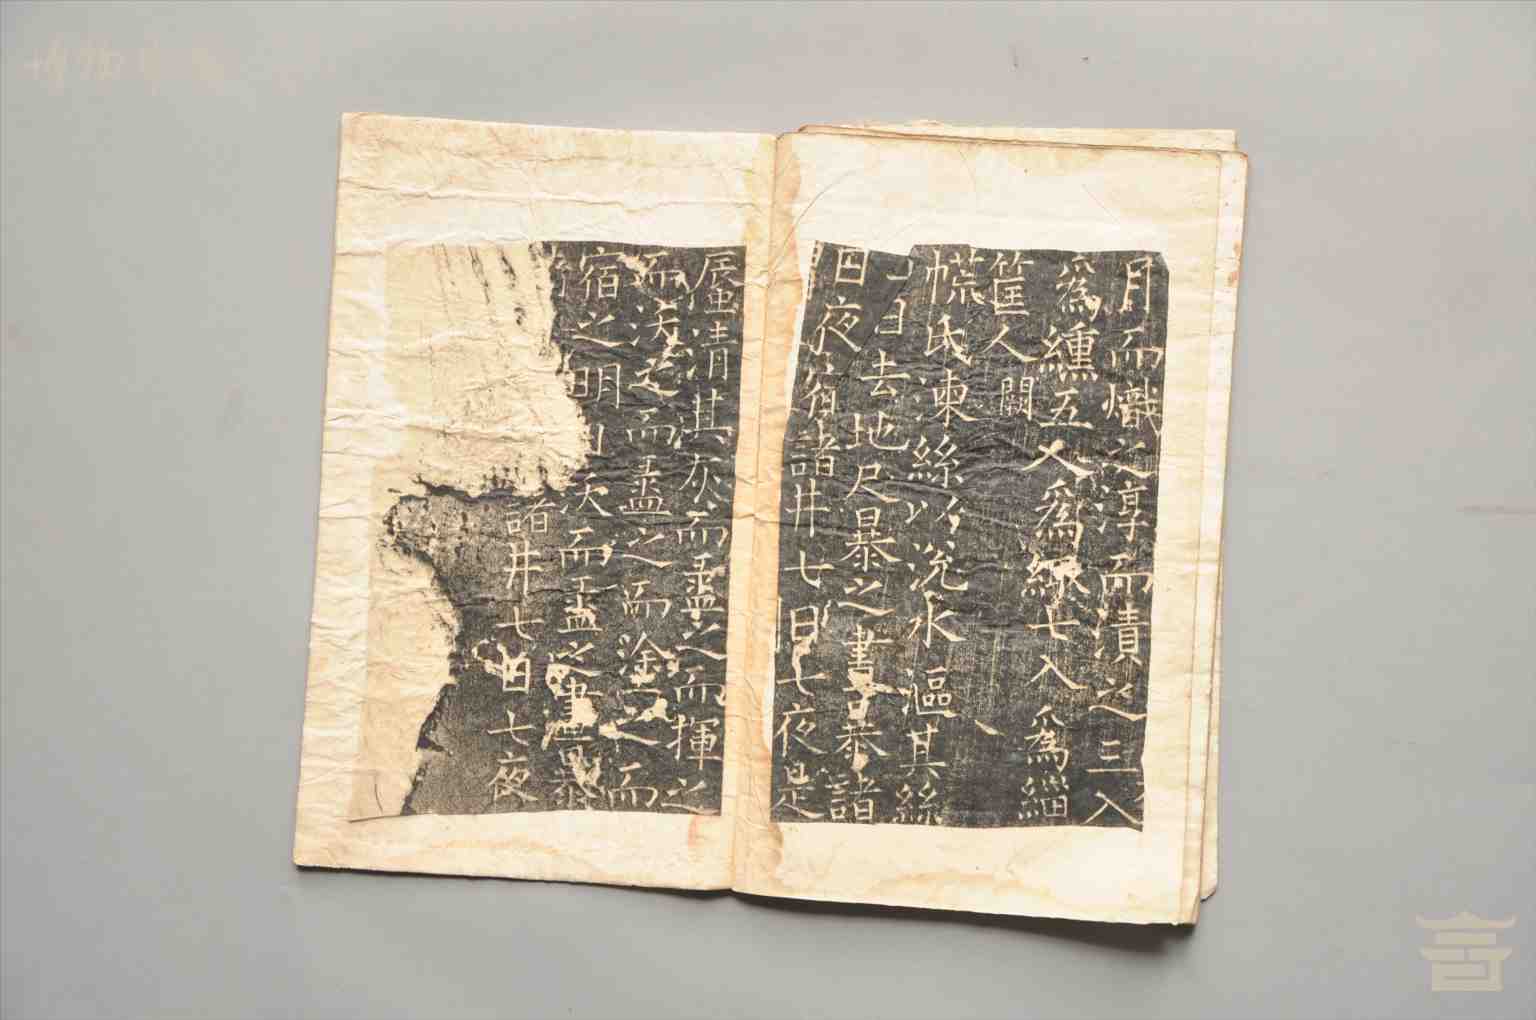 月而熾之淳而漬之三入
爲纁五入爲緅七入爲緇
筐人闕
㡛氏湅絲以涗水漚其絲
日去地尺暴之晝暴諸
日夜宿諸井七日七夜是
蜃清其灰而盝之而揮之
而沃之而盝之而塗之而
宿之明日沃而盝之晝暴
諸井七日七夜